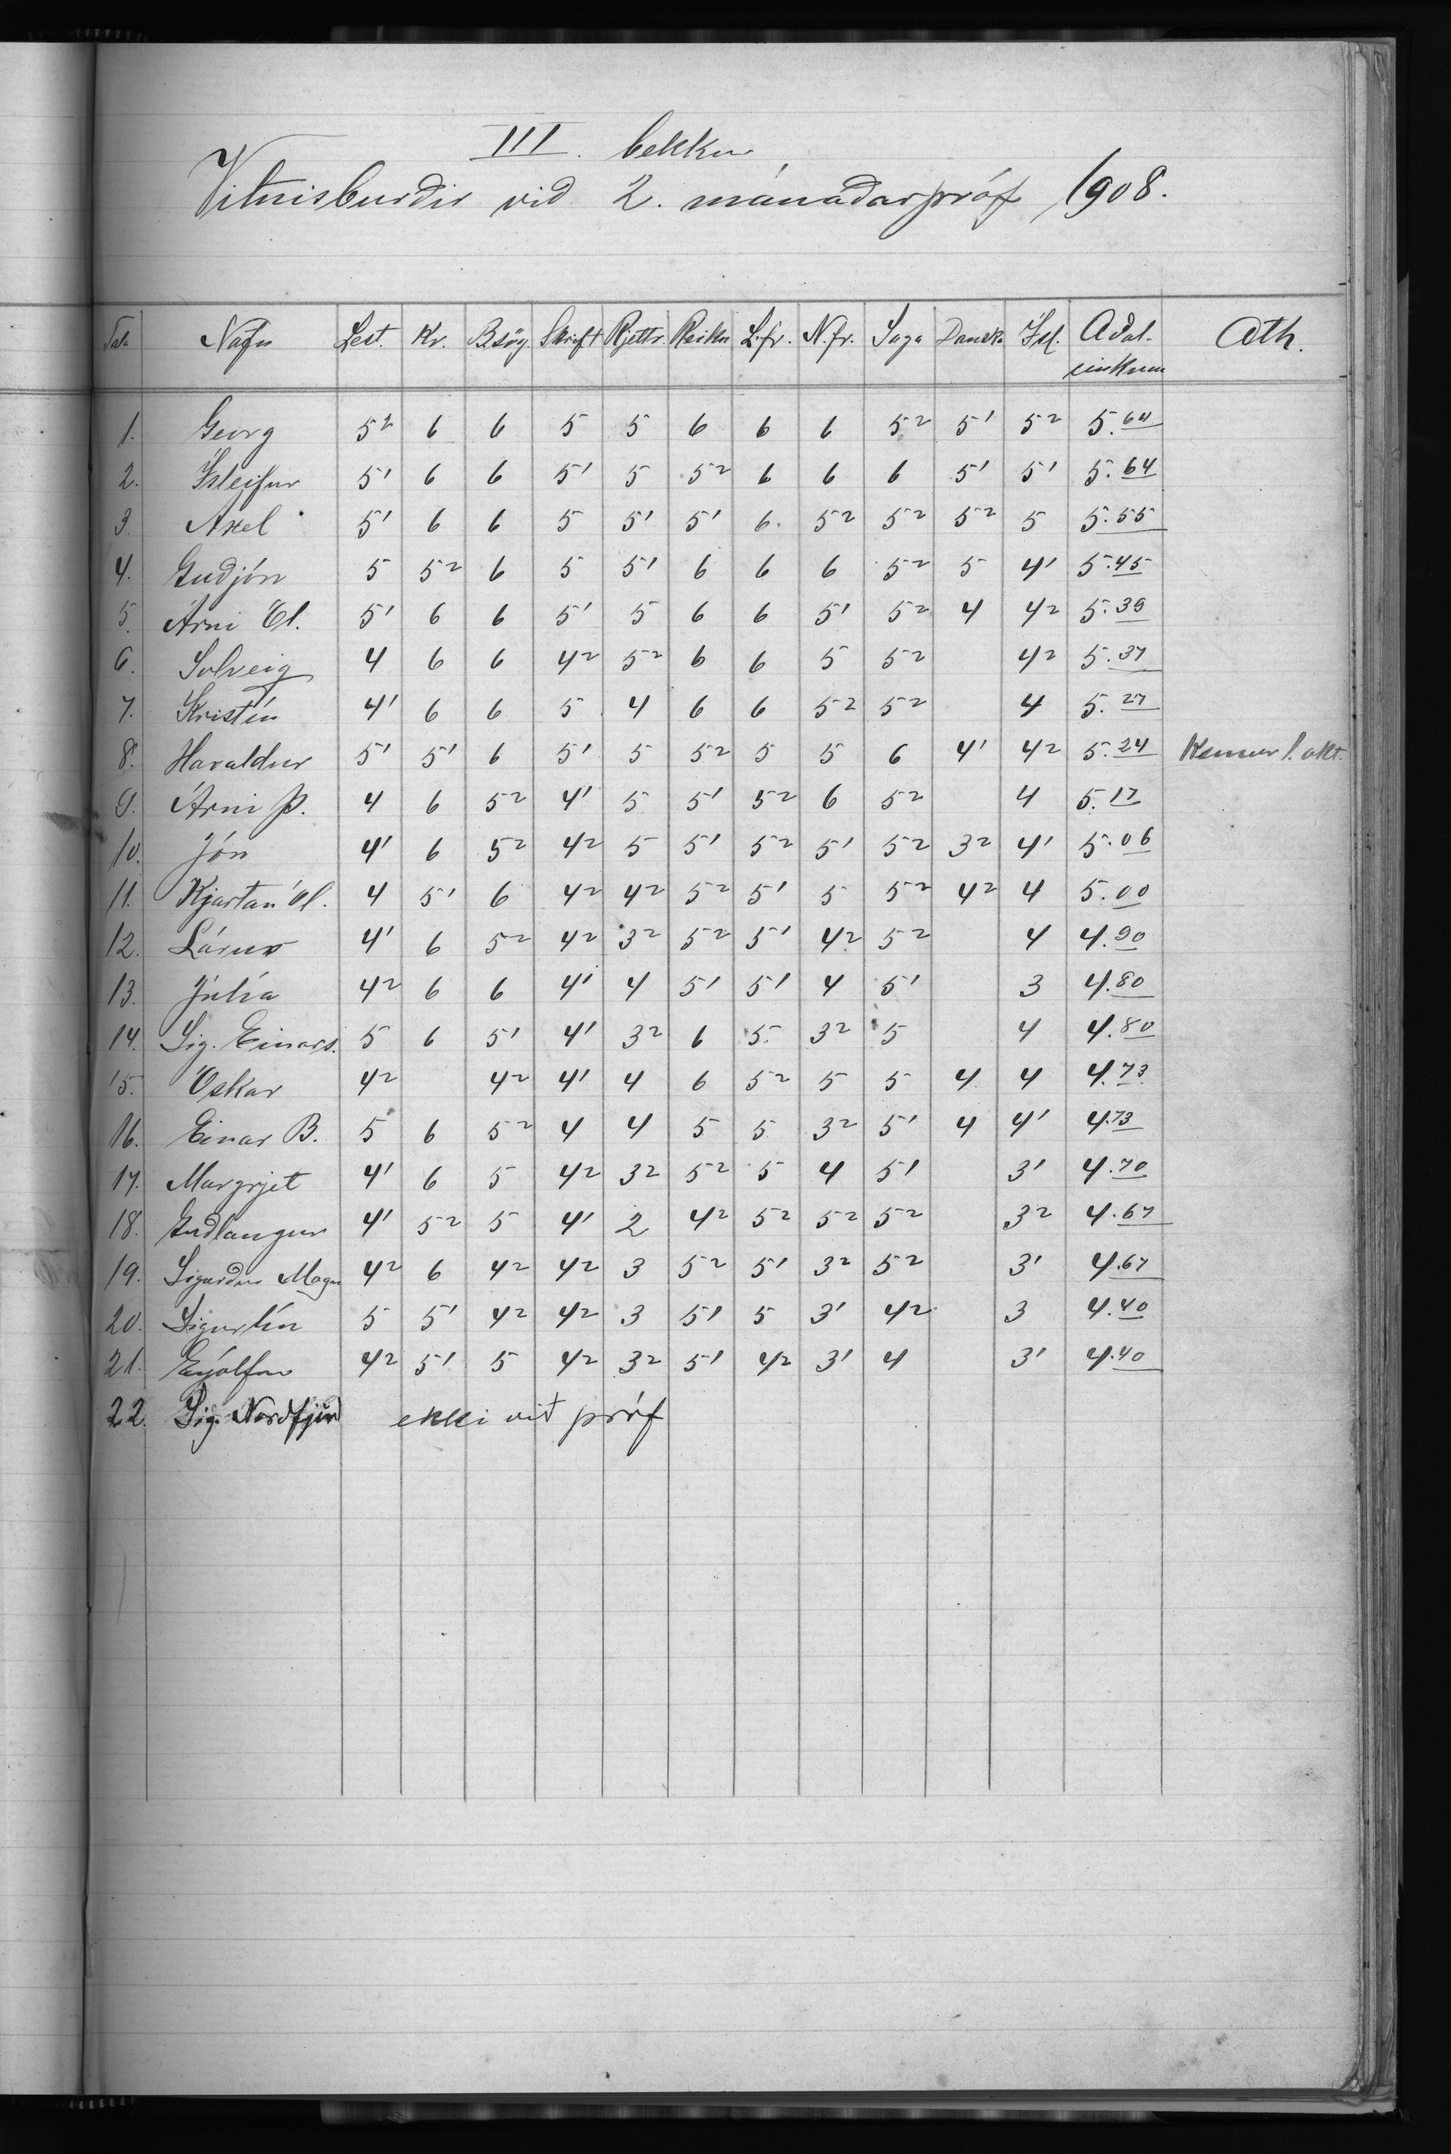 III. bekkur
Vitnisburðir við 2. mánaðarpróf 1908.
Tala Nafn Lest. Kr. B.sög. Skrift Rjettr. Reikn L.fr. N.fr. Saga Danska Ísl. Aðal- Ath.
einkunn
1. Georg 5² 6 6 5 5 6 6 6 5² 5¹ 5² 5.64
2. Ísleifur 5¹ 6 6 5¹ 5 5² 6 6 6 5¹ 5¹ 5.64
3. Axel 5¹ 6 6 5 5¹ 5¹ 6 5² 5² 5² 5 5.55
4. Guðjón 5 5² 6 5 5¹ 6 6 6 5² 5 4¹ 5.45
5. Árni Ól. 5¹ 6 6 5¹ 5 6 6 5¹ 5² 4 4² 5.39
6. Solveig 4 6 6 4² 5² 6 6 5 5² 4² 5.37
7. Kristín 4¹ 6 6 5 4 6 6 5² 5² 4 5.27
8. Haraldur 5¹ 5¹ 6 5¹ 5 5² 5 5 6 4¹ 4² 5.24 Kemur 1. okt.
9. Árni Þ. 4 6 5² 4¹ 5 5¹ 5² 6 5² 4 5.17
10. Jón 4¹ 6 5² 4² 5 5¹ 5² 5¹ 5² 3² 4¹ 5.06
11. Kjartan Ól. 4 5¹ 6 4² 4² 5² 5¹ 5 5² 4² 4 5.00
12. Lárus 4¹ 6 5² 4² 3² 5² 5¹ 4² 5² 4 4.90
13. Júlía 4² 6 6 4¹ 4 5¹ 5¹ 4 5¹ 3 4.80
14. Sig. Einars. 5 6 5¹ 4¹ 3² 6 5 3² 5 4 4.80
15. Óskar 4² 4² 4¹ 4 6 5² 5 5 4 4 4.73
16. Einar B. 5 6 5² 4 4 5 5 3² 5¹ 4 4¹ 4.73
17. Margrjet 4¹ 6 5 4² 3² 5² 5 4 5¹ 3¹ 4.70
18. Guðlaugur 4¹ 5² 5 4¹ 2 4² 5² 5² 5² 3² 4.67
19. Sigurður Magn 4² 6 4² 4² 3 5² 5¹ 3² 5² 3¹ 4.67
20. Sigurlín 5 5¹ 4² 4² 3 5¹ 5 3¹ 4² 3 4.40
21. Eyólfur 4² 5¹ 5 4² 3² 5¹ 4² 3¹ 4 3¹ 4.40
22. Sig. Nordfjörd ekki við próf